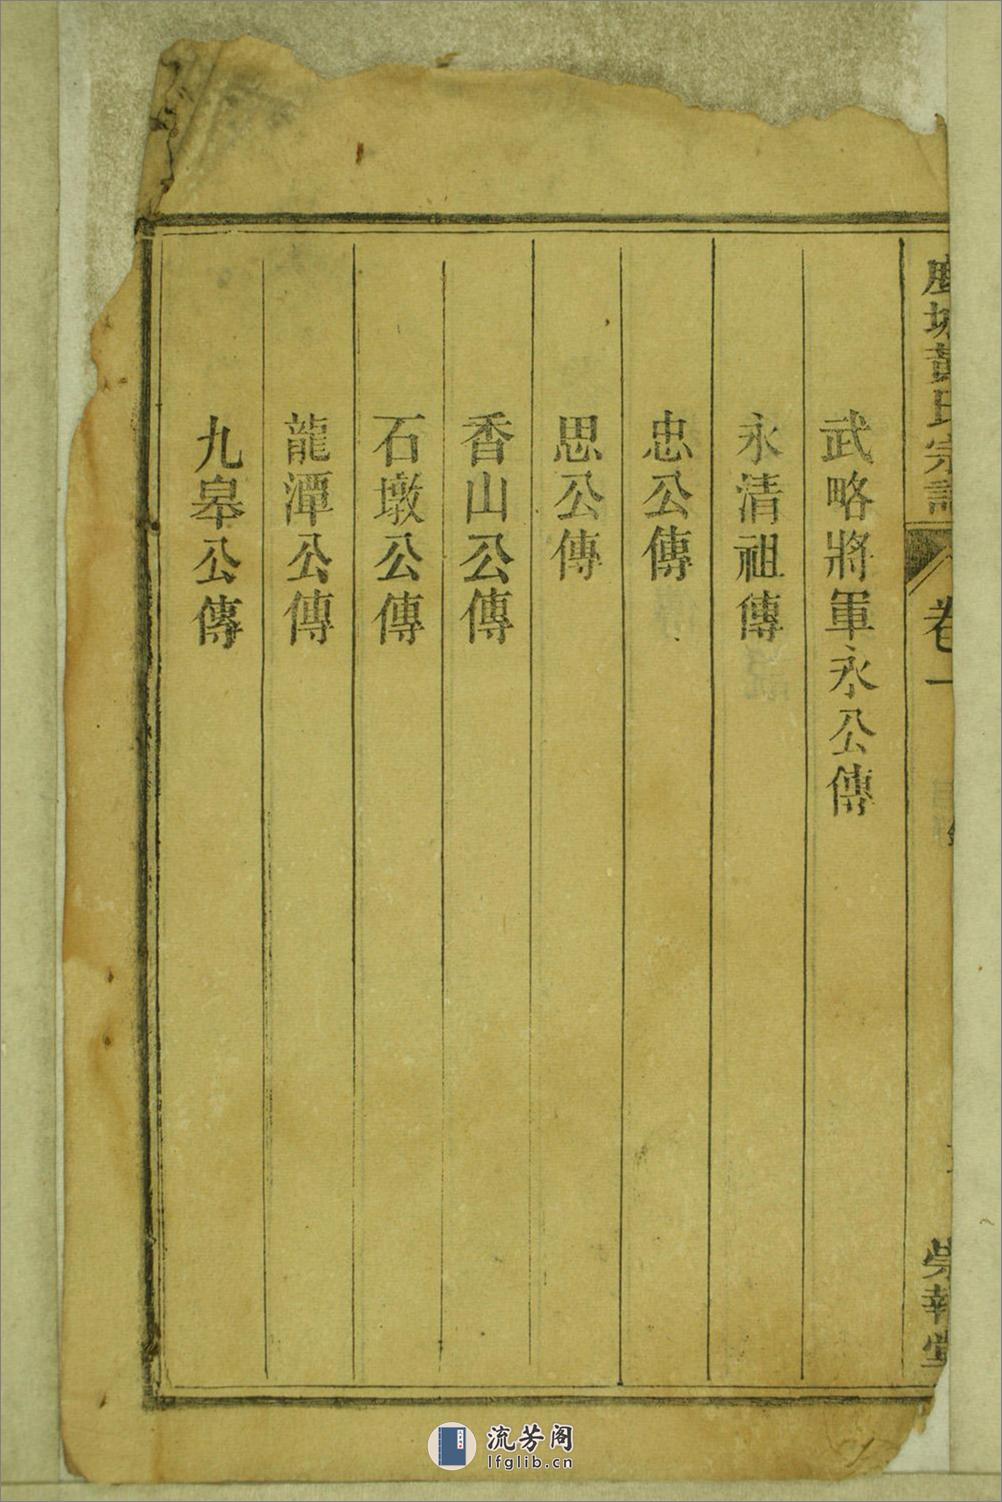 城黃氏宗譜
卷一
堂
武略將軍永公傳
永清祖傳
忠公傳
思公傳
香山公傳
石墩公傳
龍潭公傳
九皋公傳
流芳阁
lfglib.cn